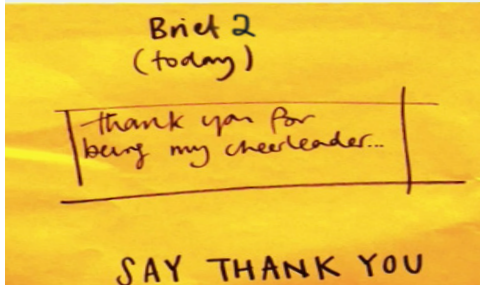 Brief 2
(today)
thank you for
being my cheerleader...
SAY THANK YOU